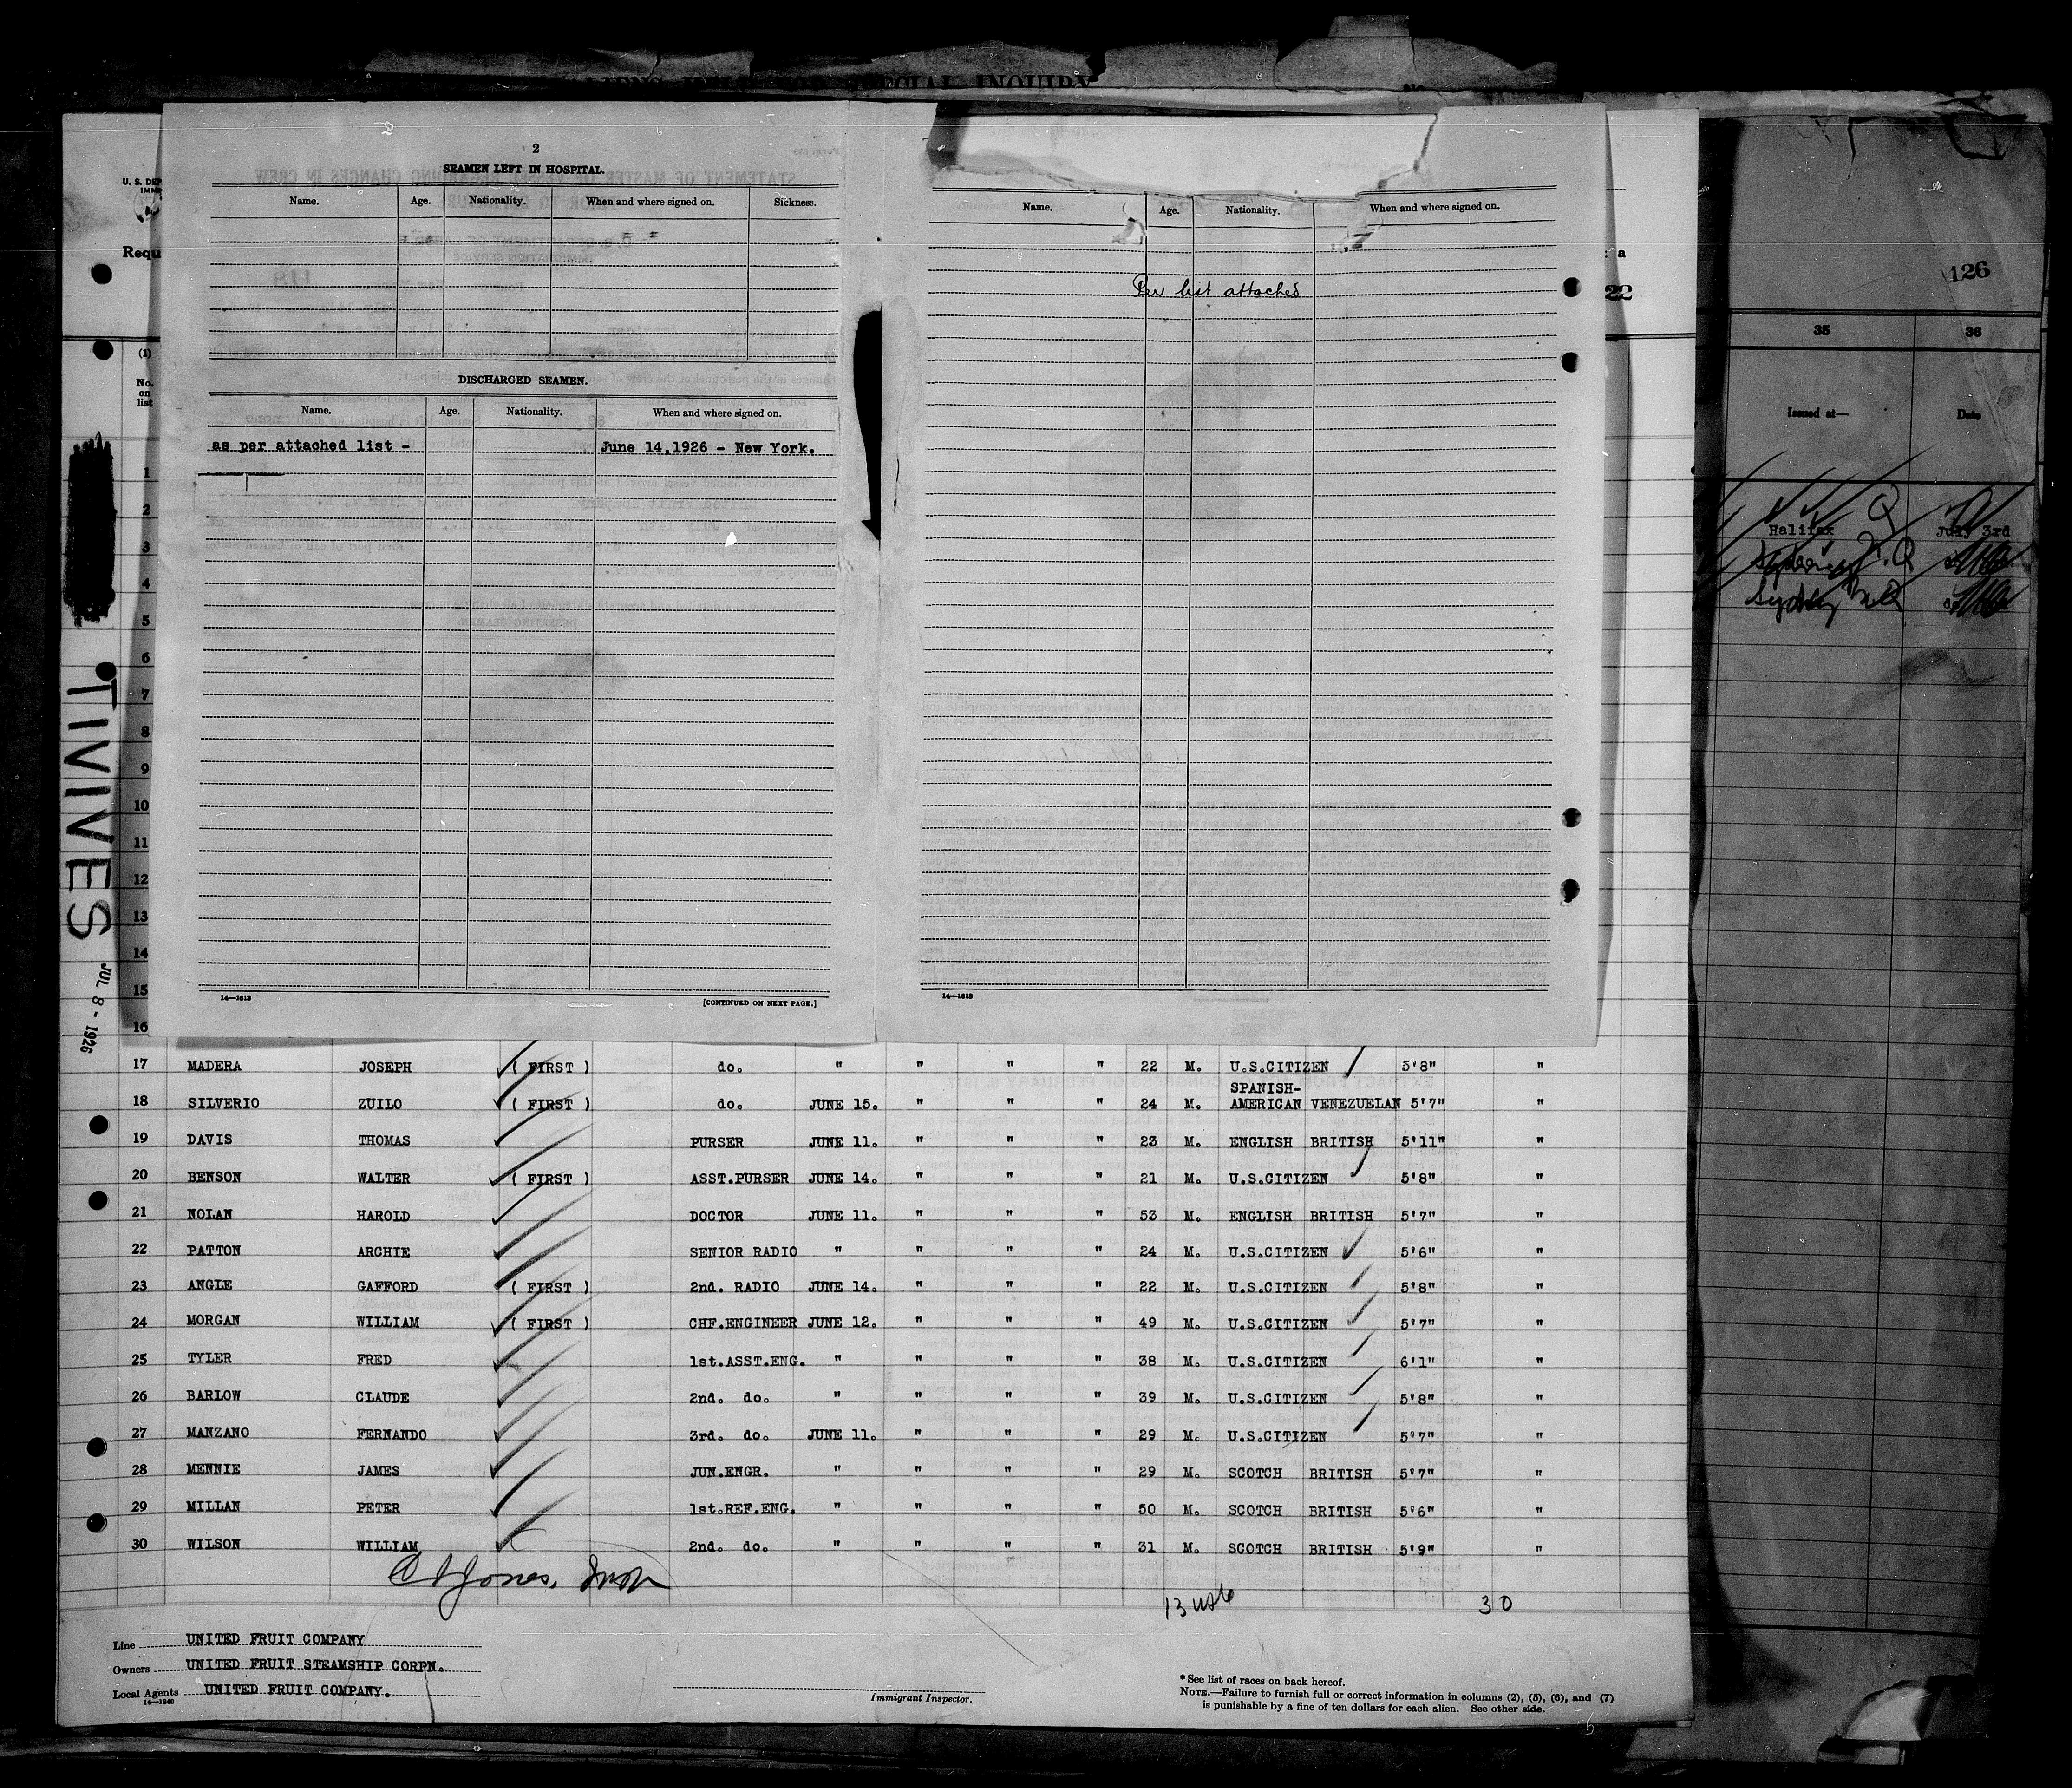 ALIENS HELD FOR SPECIAL INQUIRY
No.
2
SEAMEN LEFT IN HOSPITAL.
Name. Age. Nationality. When and where signed on. Sickness.
DISCHARGED SEAMEN.
Name. Age. Nationality. When and where signed on.
as per attached list - June 14, 1926 - New York.
14—1613 [CONTINUED ON NEXT PAGE.]
Name. Age. Nationality. When and where signed on.
Per list attached
14—1613
U. S. DEP
IMM
Requ
a
22
(1)
No. on list
1
2
3
4
5
6
7
8
9
10
11
12
13
14
15
16
TIVIVES
JUL 8 - 1926
126
35 36
Issued at— Date
Halifax July 3rd
Sydney
17 MADERA JOSEPH ( FIRST ) do. " " " " 22 M. U.S.CITIZEN 5'8" "
18 SILVERIO ZUILO ( FIRST ) do. JUNE 15. " " " 24 M. SPANISH-AMERICAN VENEZUELAN 5'7" "
19 DAVIS THOMAS PURSER JUNE 11. " " " 23 M. ENGLISH BRITISH 5'11" "
20 BENSON WALTER ( FIRST ) ASST.PURSER JUNE 14. " " " 21 M. U.S.CITIZEN 5'8" "
21 NOLAN HAROLD DOCTOR JUNE 11. " " " 53 M. ENGLISH BRITISH 5'7" "
22 PATTON ARCHIE SENIOR RADIO " " " " 24 M. U.S.CITIZEN 5'6" "
23 ANGLE GAFFORD ( FIRST ) 2nd. RADIO JUNE 14. " " " 22 M. U.S.CITIZEN 5'8" "
24 MORGAN WILLIAM ( FIRST ) CHF.ENGINEER JUNE 12. " " " 49 M. U.S.CITIZEN 5'7" "
25 TYLER FRED 1st.ASST.ENG. " " " " 38 M. U.S.CITIZEN 6'1" "
26 BARLOW CLAUDE 2nd. do. " " " " 39 M. U.S.CITIZEN 5'8" "
27 MANZANO FERNANDO 3rd. do. JUNE 11. " " " 29 M. U.S.CITIZEN 5'7" "
28 MENNIE JAMES JUN.ENGR. " " " " 29 M. SCOTCH BRITISH 5'7" "
29 MILLAN PETER 1st.REF.ENG. " " " " 50 M. SCOTCH BRITISH 5'6" "
30 WILSON WILLIAM 2nd. do. " " " " 31 M. SCOTCH BRITISH 5'9" "
Jones,
13 usc 30
Line UNITED FRUIT COMPANY
Owners UNITED FRUIT STEAMSHIP CORPN.
Local Agents UNITED FRUIT COMPANY.
14—1240
Immigrant Inspector.
* See list of races on back hereof.
NOTE.—Failure to furnish full or correct information in columns (2), (5), (6), and (7)
is punishable by a fine of ten dollars for each alien. See other side.